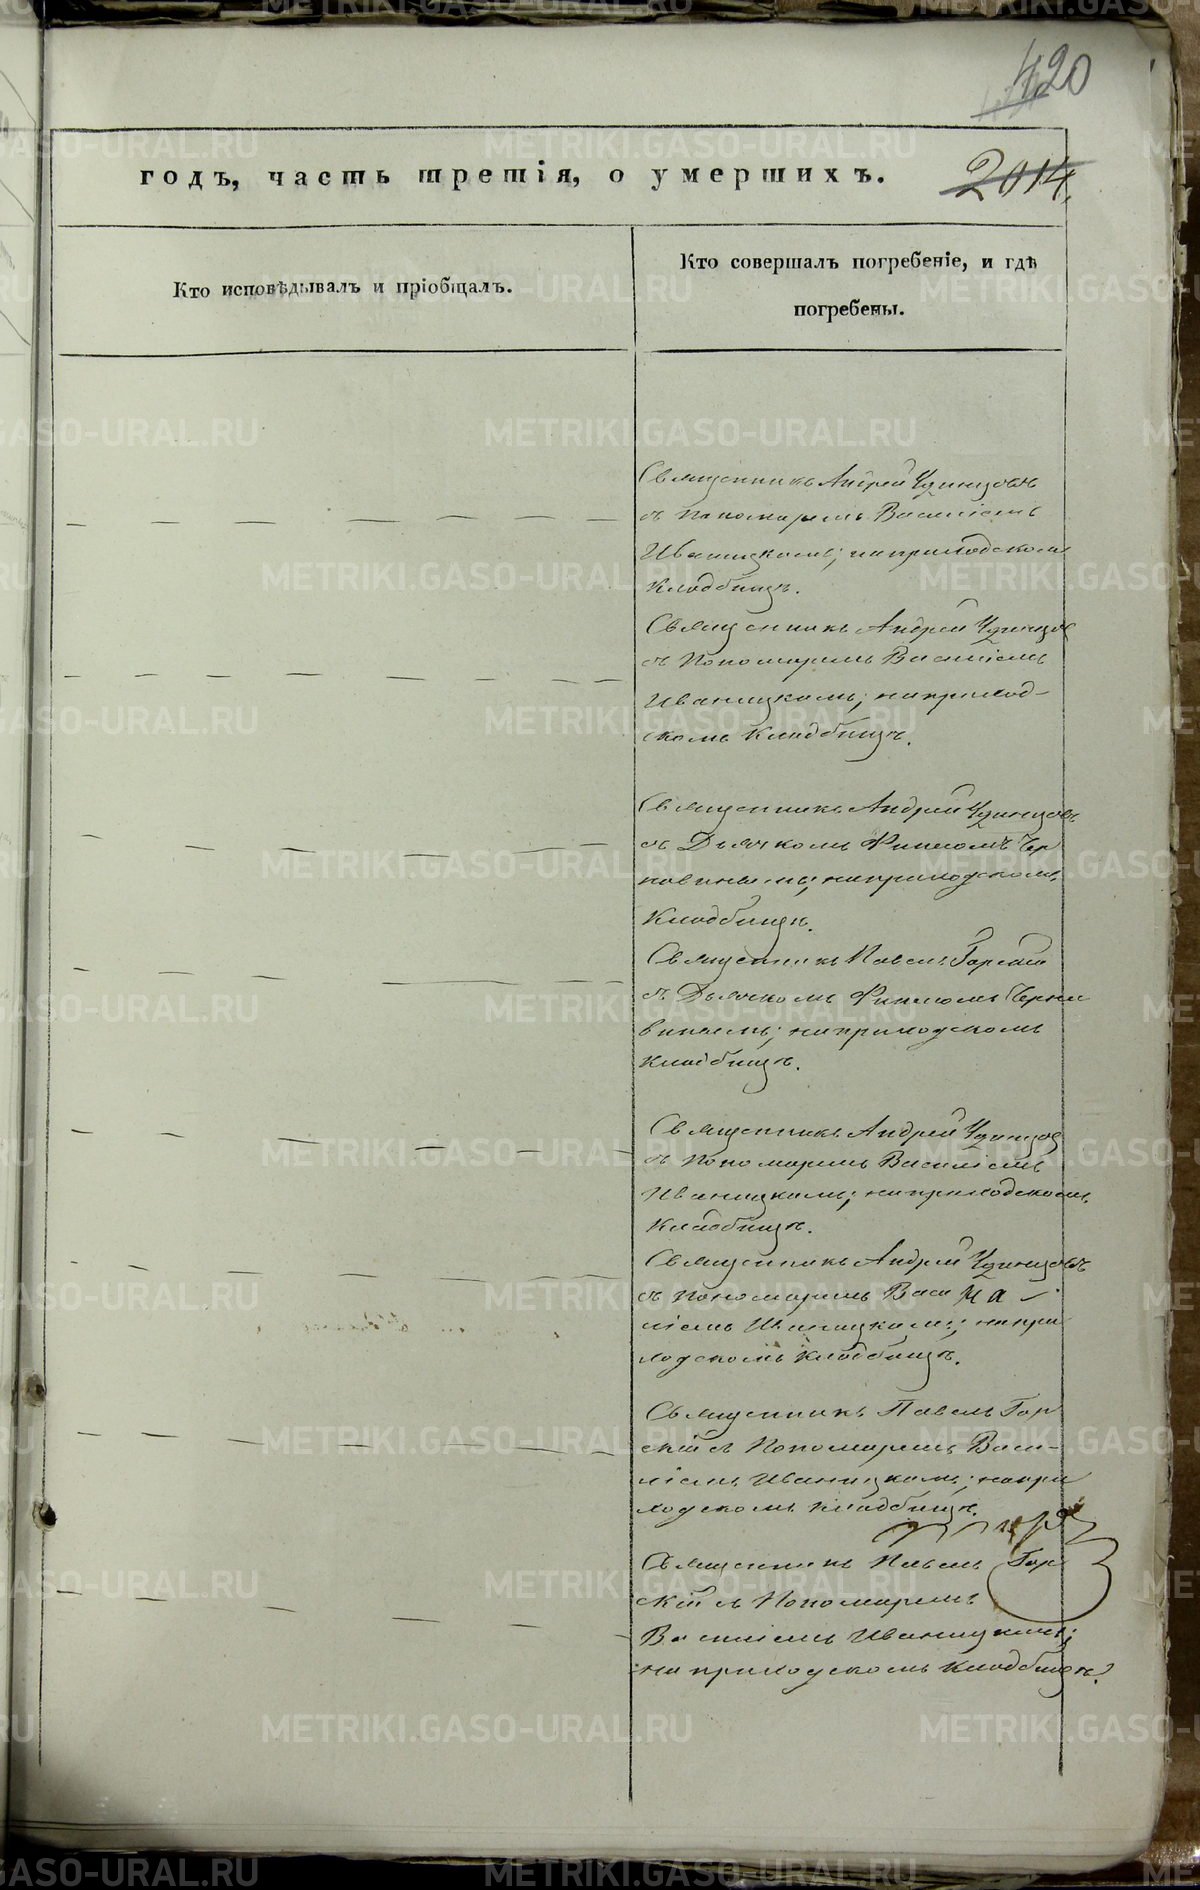 420
годъ, часть третія, о умершихъ.
2014.
Кто исповѣдывалъ и пріобщалъ.
Кто совершалъ погребеніе, и гдѣ
погребены.
Священникъ Андрей Удинцовъ
съ Пономаремъ Василіемъ
Иваницкимъ; на приходскомъ
кладбищѣ.
Священникъ Андрей Удинцов
съ Пономаремъ Василіемъ
Иваницкимъ; на приход-
скомъ кладбищѣ.
Священникъ Андрей Удинцовъ
съ Дьячкомъ
на приходскомъ
кладбищѣ.
Священникъ Павелъ Горскій
съ Дьячкомъ
на приходскомъ
кладбищѣ.
Священникъ Андрей Удинцов
съ Пономаремъ Василіемъ
Иваницкимъ; на приходскомъ
кладбищѣ.
Священникъ Андрей Удинцовъ
съ Пономаремъ Васи
ліемъ Иваницкимъ; на при
ходскомъ кладбищѣ.
Священникъ Павелъ Гор
скій съ Пономаремъ Васи-
ліемъ Иваницкимъ; на при
ходскомъ кладбищѣ.
Священникъ Павелъ Гор
скій съ Пономаремъ
Василіемъ Иваницкимъ;
на приходскомъ кладбищѣ.
METRIKI.GASO-URAL.RU